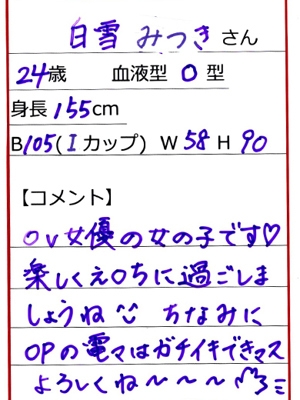 白雪みつきさん
24歳 血液型 O 型
身長 155cm
B105(Iカップ) W58 H90
【コメント】
○v女優の女の子です♡
楽しくえ○ちに過ごしま
しょうね ちなみに
OPの電マはガチイキできマス
よろしくね〜〜〜